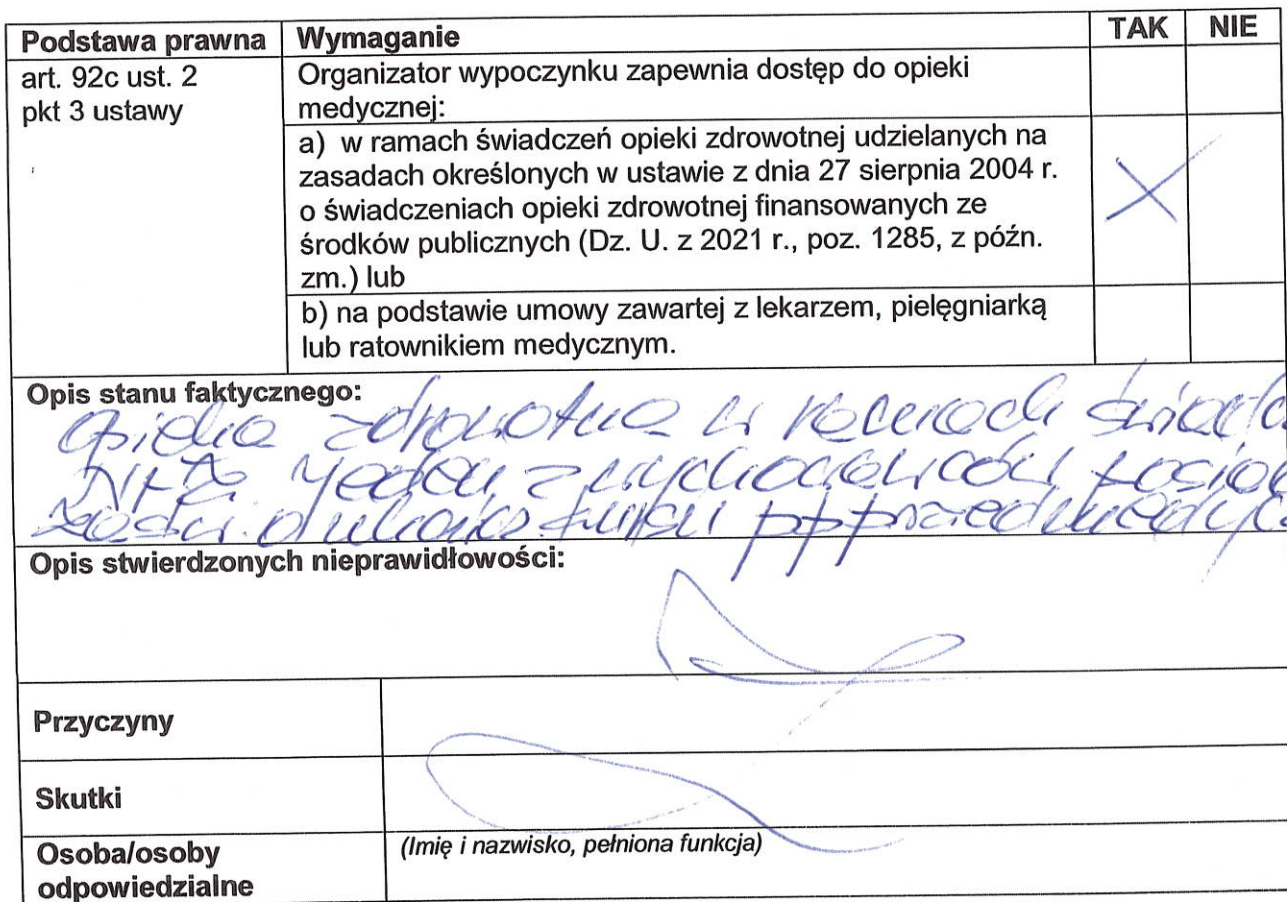 Podstawa prawna Wymaganie TAK NIE
art. 92c ust. 2
pkt 3 ustawy
Organizator wypoczynku zapewnia dostęp do opieki
medycznej:
a) w ramach świadczeń opieki zdrowotnej udzielanych na
zasadach określonych w ustawie z dnia 27 sierpnia 2004 r.
o świadczeniach opieki zdrowotnej finansowanych ze
środków publicznych (Dz. U. z 2021 r., poz. 1285, z późn.
zm.) lub
X
b) na podstawie umowy zawartej z lekarzem, pielęgniarką
lub ratownikiem medycznym.
Opis stanu faktycznego:
opieka zdrowotna w ramach
NFZ jeden z wychowawców
pp przedmedyc
Opis stwierdzonych nieprawidłowości:
Przyczyny
Skutki
Osoba/osoby
odpowiedzialne
(Imię i nazwisko, pełniona funkcja)